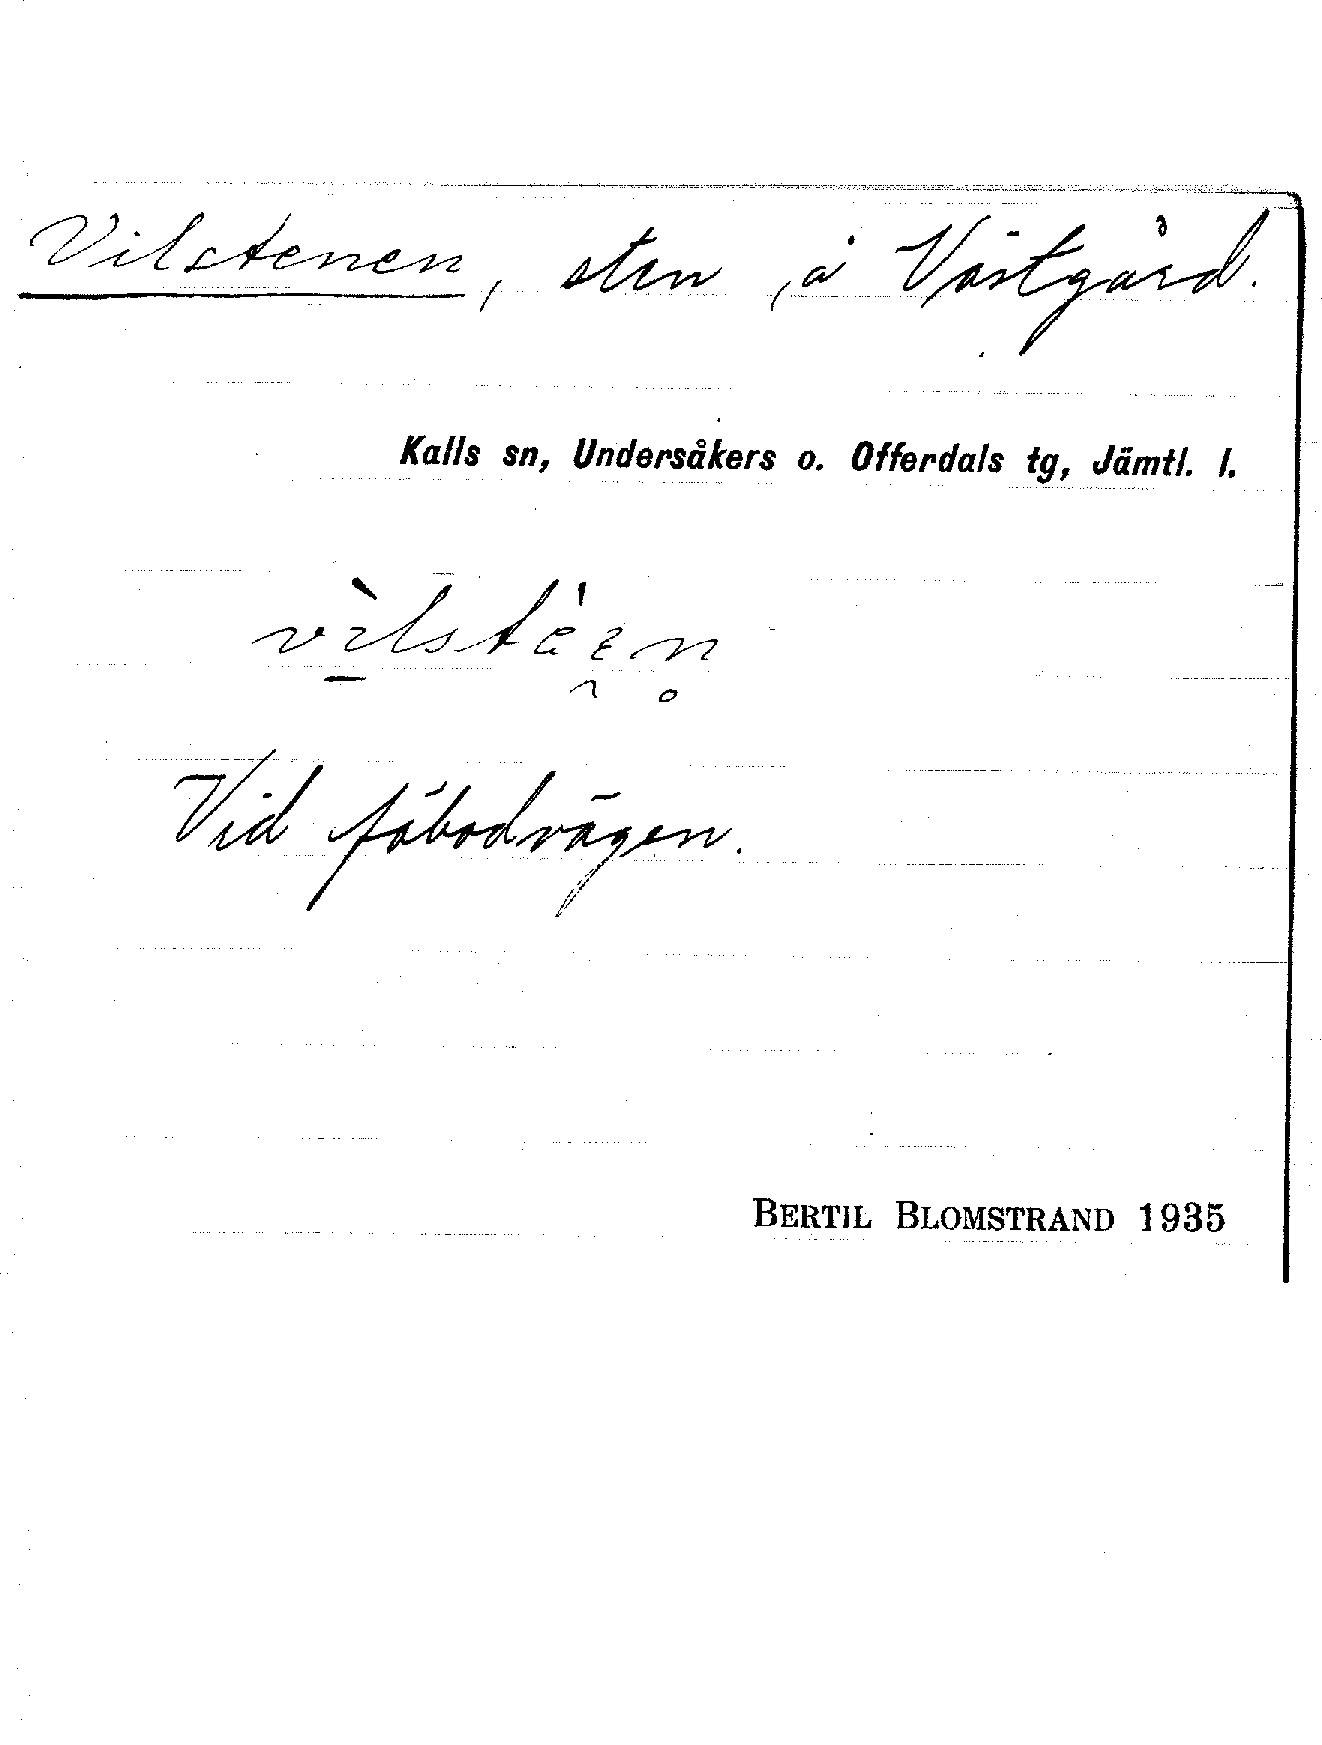 Vilstenen, sten, å Västgård.
Kalls sn, Undersåkers o. Offerdals tg, Jämtl. l.
Vid fäbodvägen.
BERTIL BLOMSTRAND 1935